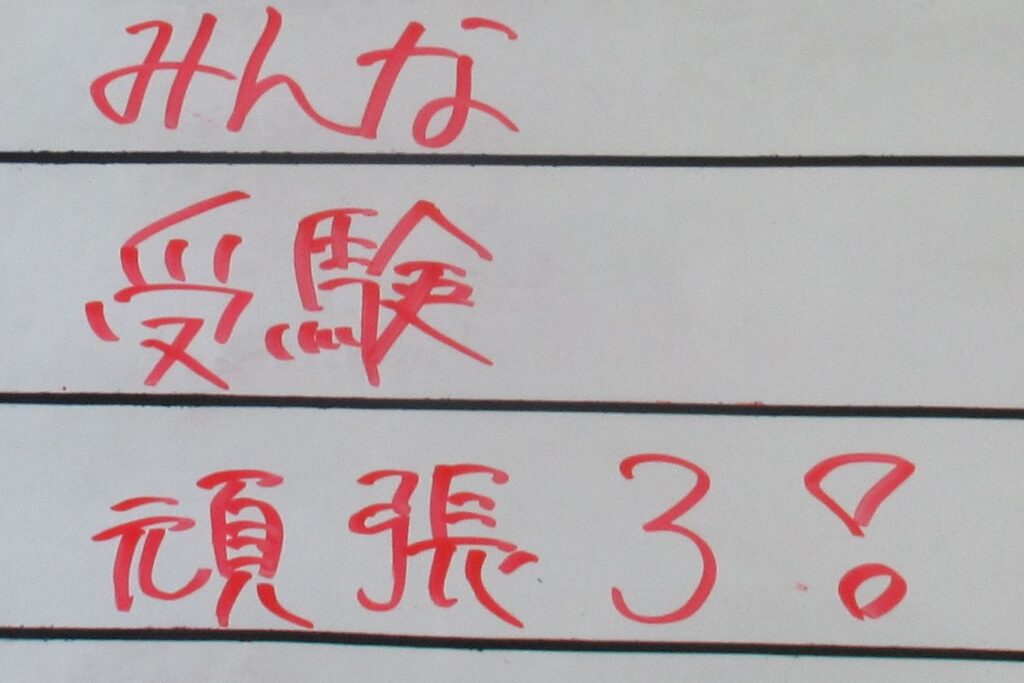 みんな
受験
頑張ろ！